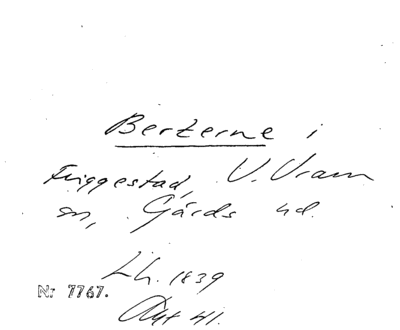 Berterne i
Friggestad, V. Vram
sn, Gärds hd.
Lh. 1839
Nr 7767.
Avt 41.